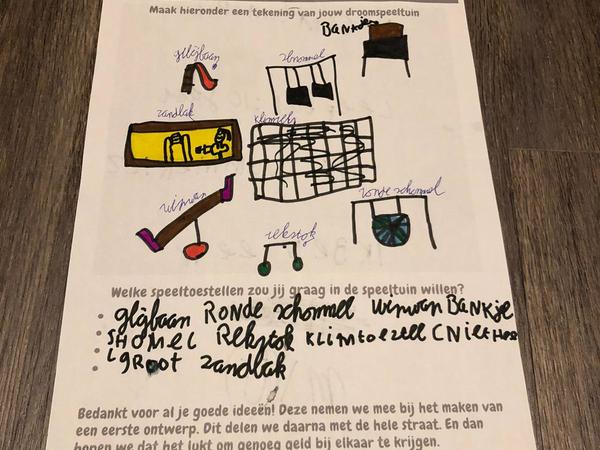 Maak hieronder een tekening van jouw droomspeeltuin
BANKje
glijbaan
shommel
zandbak
klimrek
wipwap
ronde schommel
rekstok
Welke speeltoestellen zou jij graag in de speeltuin willen?
glijbaan RONDE schommel BANKje
SHOMEL REKstok KLIMtoezell
GROOT zandbak
Bedankt voor al je goede ideeën! Deze nemen we mee bij het maken van
een eerste ontwerp. Dit delen we daarna met de hele straat. En dan
hopen we dat het lukt om genoeg geld bij elkaar te krijgen.